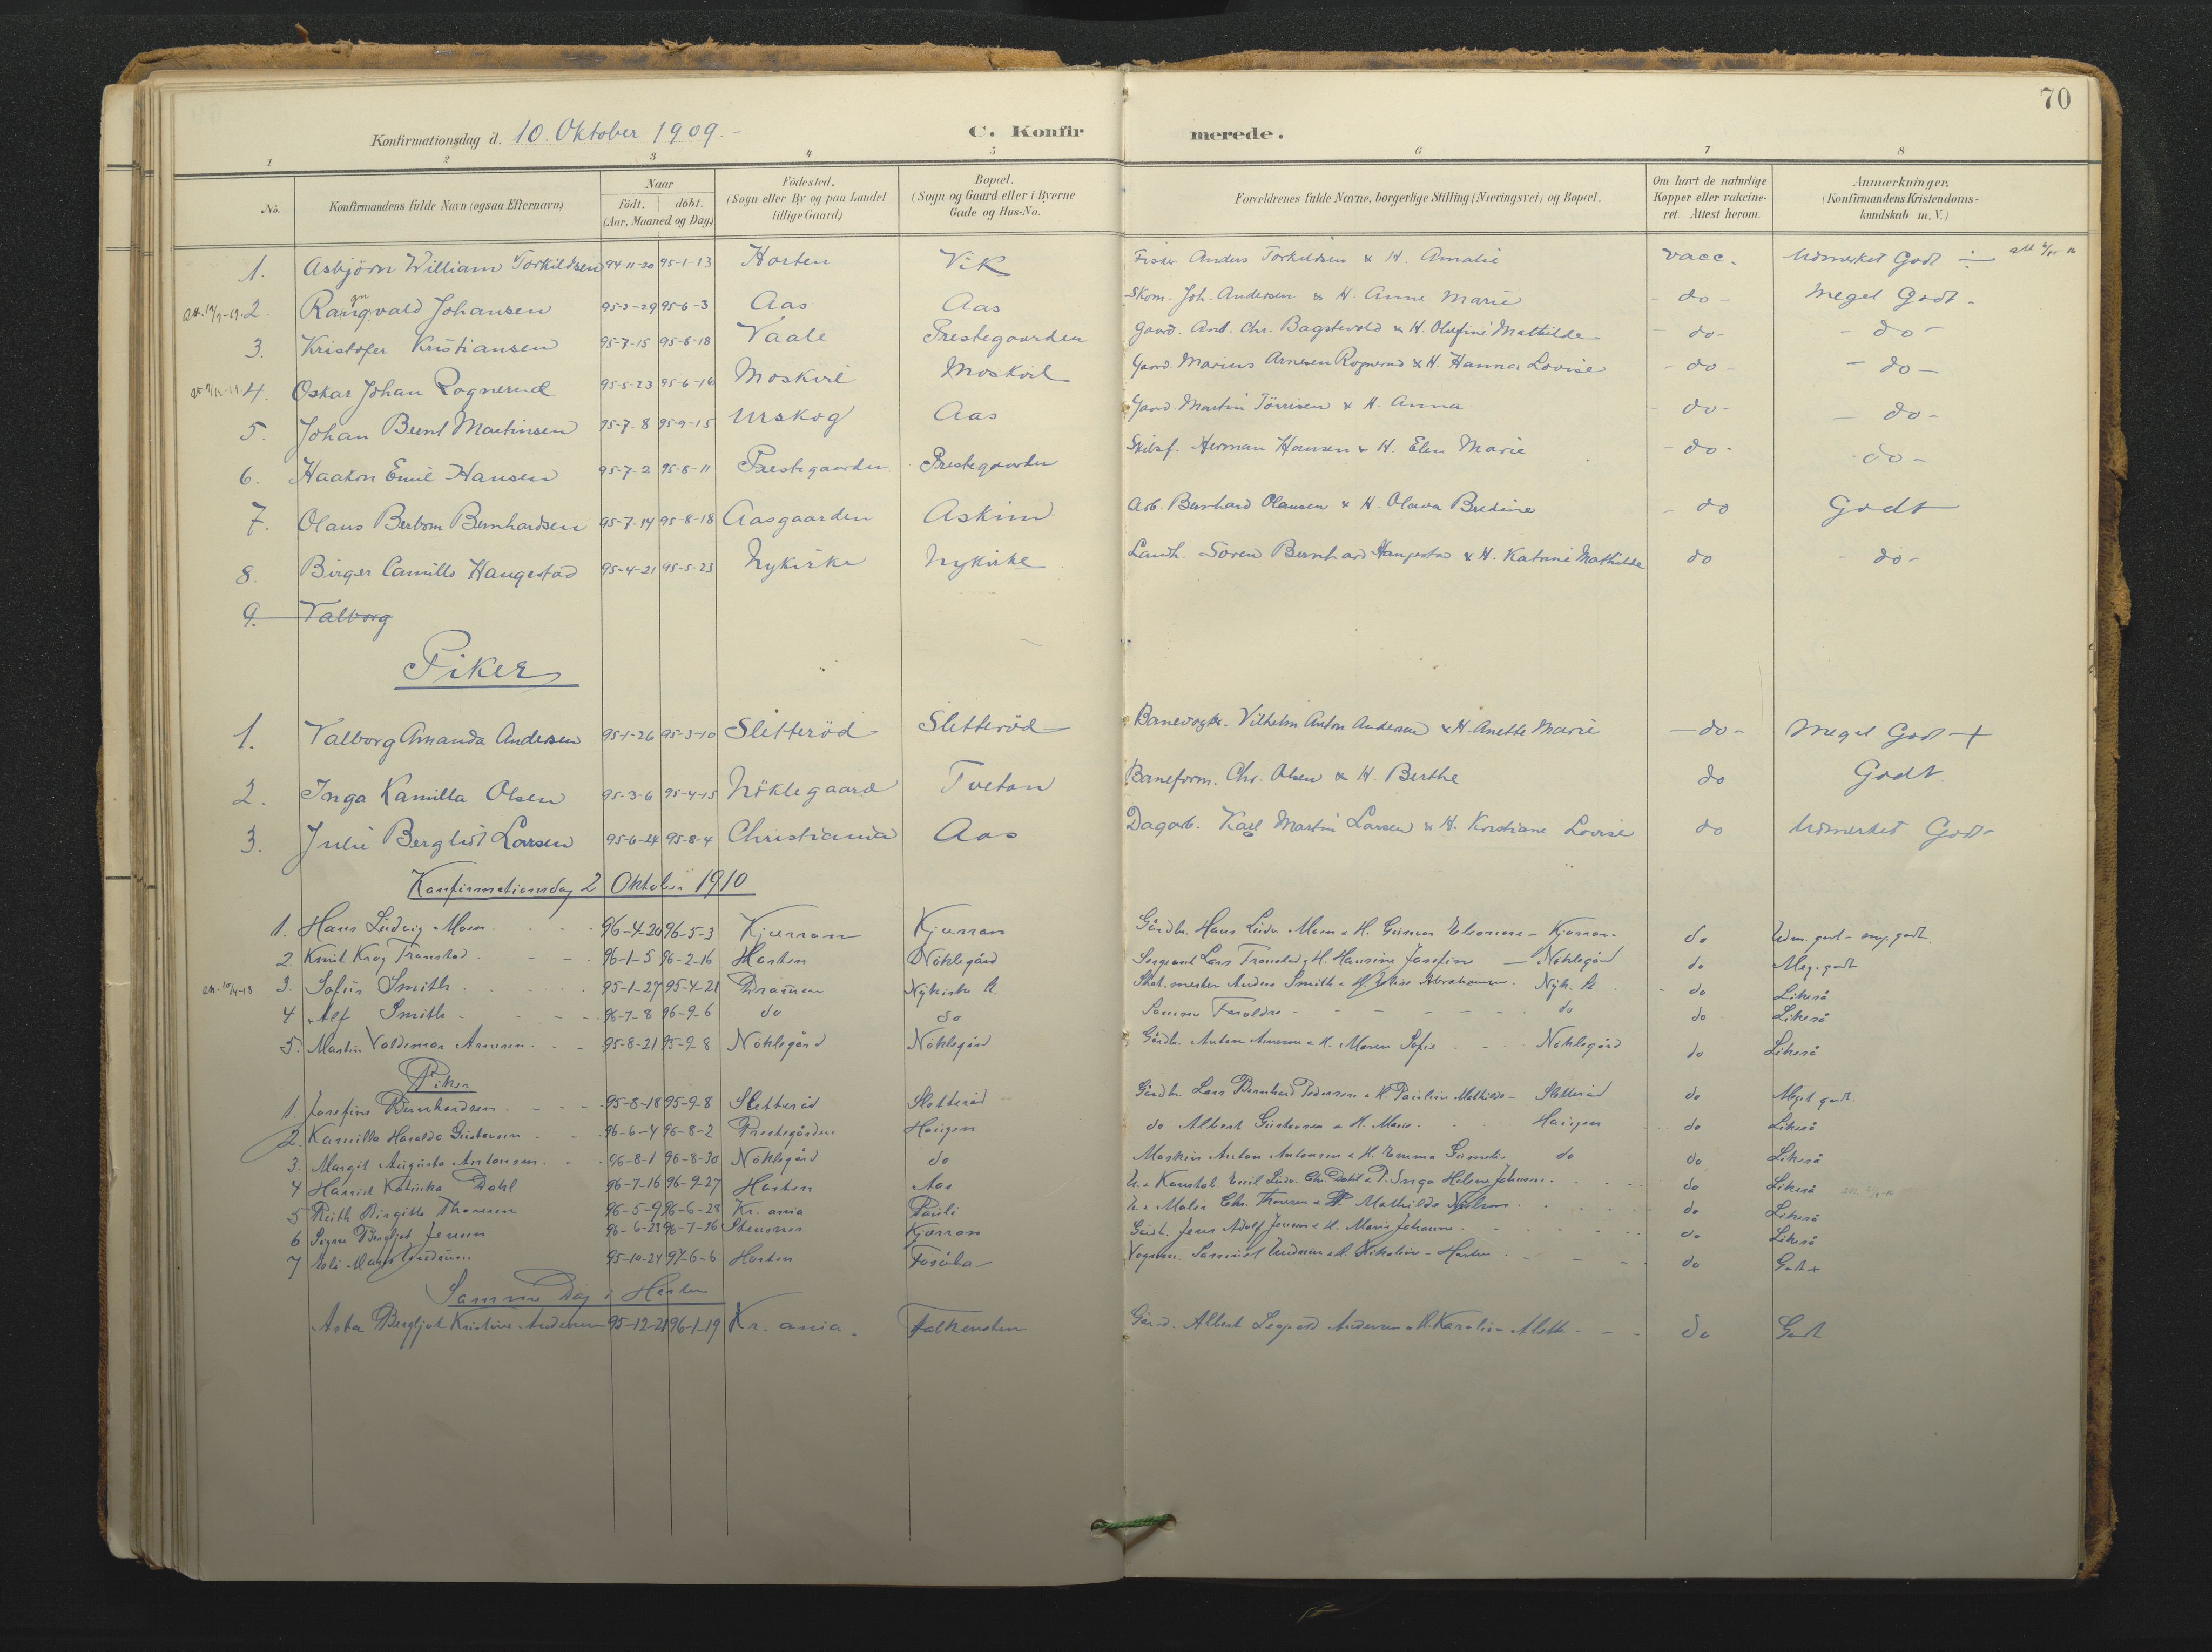 70
Konfirmationsdag d. 10. Oktober 1909.-
C. Konfir merede.
1 2 3 4 5 6 7 8
No. Konfirmandens fulde Navn (ogsaa Efternavn) Naar födt. döbt. (Aar, Maaned og Dag) Födested. (Sogn eller By og paa Landet tillige Gaard) Bopæl. (Sogn og Gaard eller i Byerne Gade og Hus-No. Forældrenes fulde Navne, borgerlige Stilling (Næringsvei) og Bopæl. Om havt de naturlige Kopper eller vakcineret. Attest herom. Anmærkninger. (Konfirmandens Kristendomskundskab m. V.)
1. Asbjörn William Torkildsen 94-11-20 95-1-13 Horten Vik Anders Torkildsen & H. Amalie vacc. Udmerket Godt ÷
2. Rangvald Johansen 95-3-29 95-6-3 Aas Aas Skom. Joh. Andersen & H. Anne Marie - do - Meget Godt -
3. Kristofer Kristiansen 95-7-15 95-8-18 Vaale Prestegaarden Gaard. And. Chr. Bagstevold & H. Olufine Mathilde - do - - do -
4. Oskar Johan Rognerud 95-5-23 95-6-16 Moskvil Moskvil Gaard. Marius Arnesen Rognerud & H. Hanna Lovise - do - - do -
5. Johan Bernt Martinsen 95-7-8 95-9-15 Urskog Aas Gaard. Martin Törrisen & H. Anna - do - - do -
6. Haakon Emil Hansen 95-7-2 95-8-11 Prestegaarden Prestegaarden Skibsf. Herman Hansen & H. Elen Marie - do - - do -
7. Olaus Berbom Bernhardsen 95-7-14 95-8-18 Aasgaarden Askim Arb. Bernhard Olausen & H. Olava Bredine - do Godt
8. Birger Camillo Haugestad 95-4-21 95-5-23 Nykirke Nykirke Landh. Sören Bernhard Haugestad & H. Katrine Mathilde do - do -
9. Valborg
Piker
1. Valborg Amanda Andersen 95-1-26 95-3-10 Sletteröd Sletteröd Banevogter. Vilhelm Anton Andersen & H. Anette Marie - do - Meget Godt +
2. Inga Kamilla Olsen 95-3-6 95-4-15 Nöklegaard Tveten Baneform. Chr. Olsen & H. Berthe do Godt.
3. Julie Bergliot Larsen 95-6-24 95-8-4 Christiania Aas Dagarb. Karl Martin Larsen & H. Kristiane Lovise do Udmerket Godt
Konfirmationsdag 2 Oktober 1910
1. Hans Ludvig Moen 96-4-20 96-5-3 Kjærran Kjærran Gårdbr. Hans Ludv. Moen & H. Gunvor Eleonore - Kjærran do Udm. godt - meg. godt.
2. Knut Krog Tronstad 96-1-5 96-2-16 Horten Nöklegård Sergeant Lars Tronstad & H. Hansine Josefine - Nöklegård do Meg. godt
3. Sofus Smith 95-1-27 95-4-21 Drammen Nykirke St. Smith & H. Abrahamsen. Nyk. St. do Likeså
4 Alf Smith 96-7-8 96-9-6 do do Samme Foreldre - do do Likeså
5. Martin Valdemar Arnesen 95-8-21 95-9-8 Nöklegård Nöklegård Gårdb. Anton Arnesen & H. Maren Sofie Nöklegård do Likeså
Piker
1. Josefine Bernhardsen 95-8-18 95-9-8 Sletteröd Sletteröd Gårdb. Lars Bernhard Pedersen & H. Pauline Mathilde - Sletteröd do Meget godt.
2. Kamilla Haralda Gustavsen 96-6-4 96-8-2 Prestegården Haugen do Albert Gustavsen & H. Marie Haugen do Likeså
3. Margit Augusta Antonsen 96-8-1 96-8-30 Nöklegård do Maskin. Anton Antonsen & H. Emma do do Likeså
4 Harriet Katinka Dahl 96-7-16 96-9-27 Horten Aas U. & Konstab. Emil Ludv. Chr. Dahl & P. Inga Helene Johnsen do Likeså
5 Ruth Birgitte Thoresen 96-5-9 96-6-28 Kr. ania Pauli U. & Maler Chr. Thoresen & P. Mathilde do Likeså
6 Signe Bergljot Jensen 96-6-28 96-7-26 Kjærran Gårdb. Jens Adolf Jensen & H. Marie Johanne do Likeså
7 95-10-24 97-6-6 Horten do Godt +
Samme Dag i Horten
Asta Bergljot Kristine Andersen 95-12-21 96-1-19 Kr. ania. Falkensten Gård. Albert Leopold Andersen & H. Karoline Mette do Godt